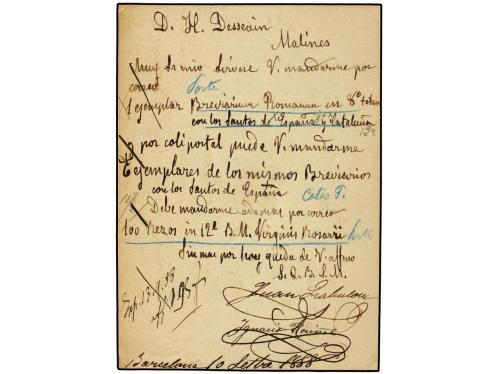 D. H. Dessain
Malines
Muy Sr mio sirvase V. mandarme por
correo
1 ejemplar Breviarium Romanum in 8º totum
con los Santos de España y Cataluña
y por coli postal puede V. mandarme
6 ejemplares de los mismos Breviarios
con los Santos de España
Debe mandarme ademas por correo
100 Rezos in 12º B. M. Virginis Rosarii
Sin mas por hoy queda de V. affmo
S. Q. B. S. M.
Juan
Ignacio
Barcelona 10 1888